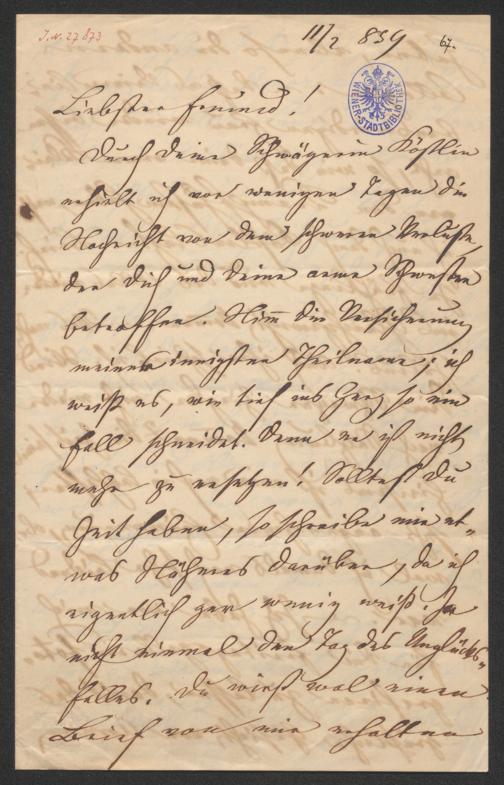 I.N. 27.873
11/2 839
67.
WIENER-STADTBIBLIOTHEK
Liebster Freund!
Durch Deine Schwägerin Köstlin
erhielt ich vor wenigen Tagen die
Nachricht von dem schweren Verluste,
der Dich und Deine arme Schwester
betroffen. Nimm die Versicherung
meiner innigsten Theilname; ich
weiß es, wie tief ins Herz so ein
Fall schneidet. Denn er ist nicht
mehr zu ersetzen! Solltest Du
Zeit haben, so schreibe mir et-
was Näheres darüber, da ich
eigentlich gar wenig weiß. Ja
nicht einmal den Tag des Unglücks-
falles. Du wirst wol einen
Brief von mir erhalten